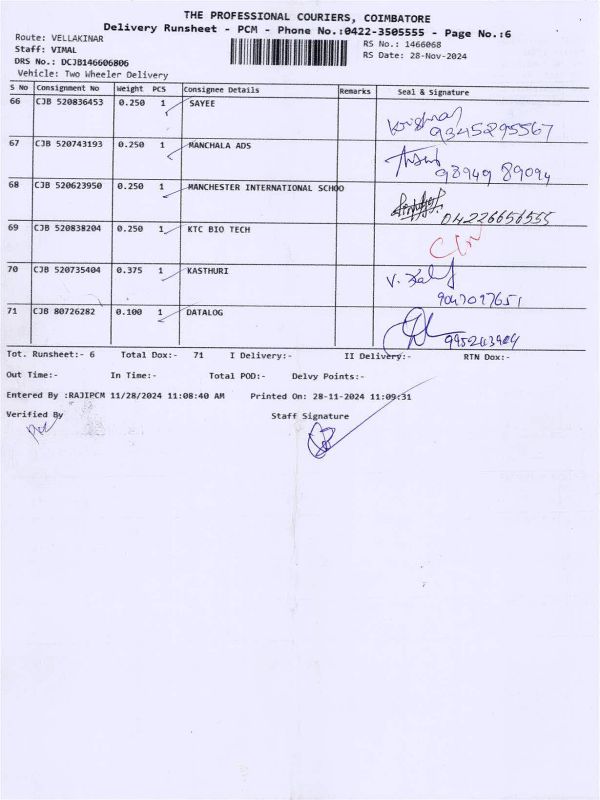 THE PROFESSIONAL COURIERS, COIMBATORE
Delivery Runsheet - PCM - Phone No.:0422-3505555 - Page No.:6
Route: VELLAKINAR
RS No.: 1466068
Staff: VIMAL
RS Date: 28-Nov-2024
DRS No.: DCJB146606806
Vehicle: Two Wheeler Delivery
S No Consignment No Weight PCS Consignee Details Remarks Seal & Signature
66 CJB 520836453 0.250 1 SAYEE
9345295567
67 CJB 520743193 0.250 1 MANCHALA ADS
98949 89094
68 CJB 520623950 0.250 1 MANCHESTER INTERNATIONAL SCHOO
04226656555
69 CJB 520838204 0.250 1 KTC BIO TECH
70 CJB 520735404 0.375 1 KASTHURI
9047027651
71 CJB 80726282 0.100 1 DATALOG
Tot. Runsheet:- 6 Total Dox:- 71 I Delivery:- II Delivery:- RTN Dox:-
Out Time:- In Time:- Total POD:- Delvy Points:-
Entered By :RAJIPCM 11/28/2024 11:08:40 AM Printed On: 28-11-2024 11:09:31
Verified By Staff Signature